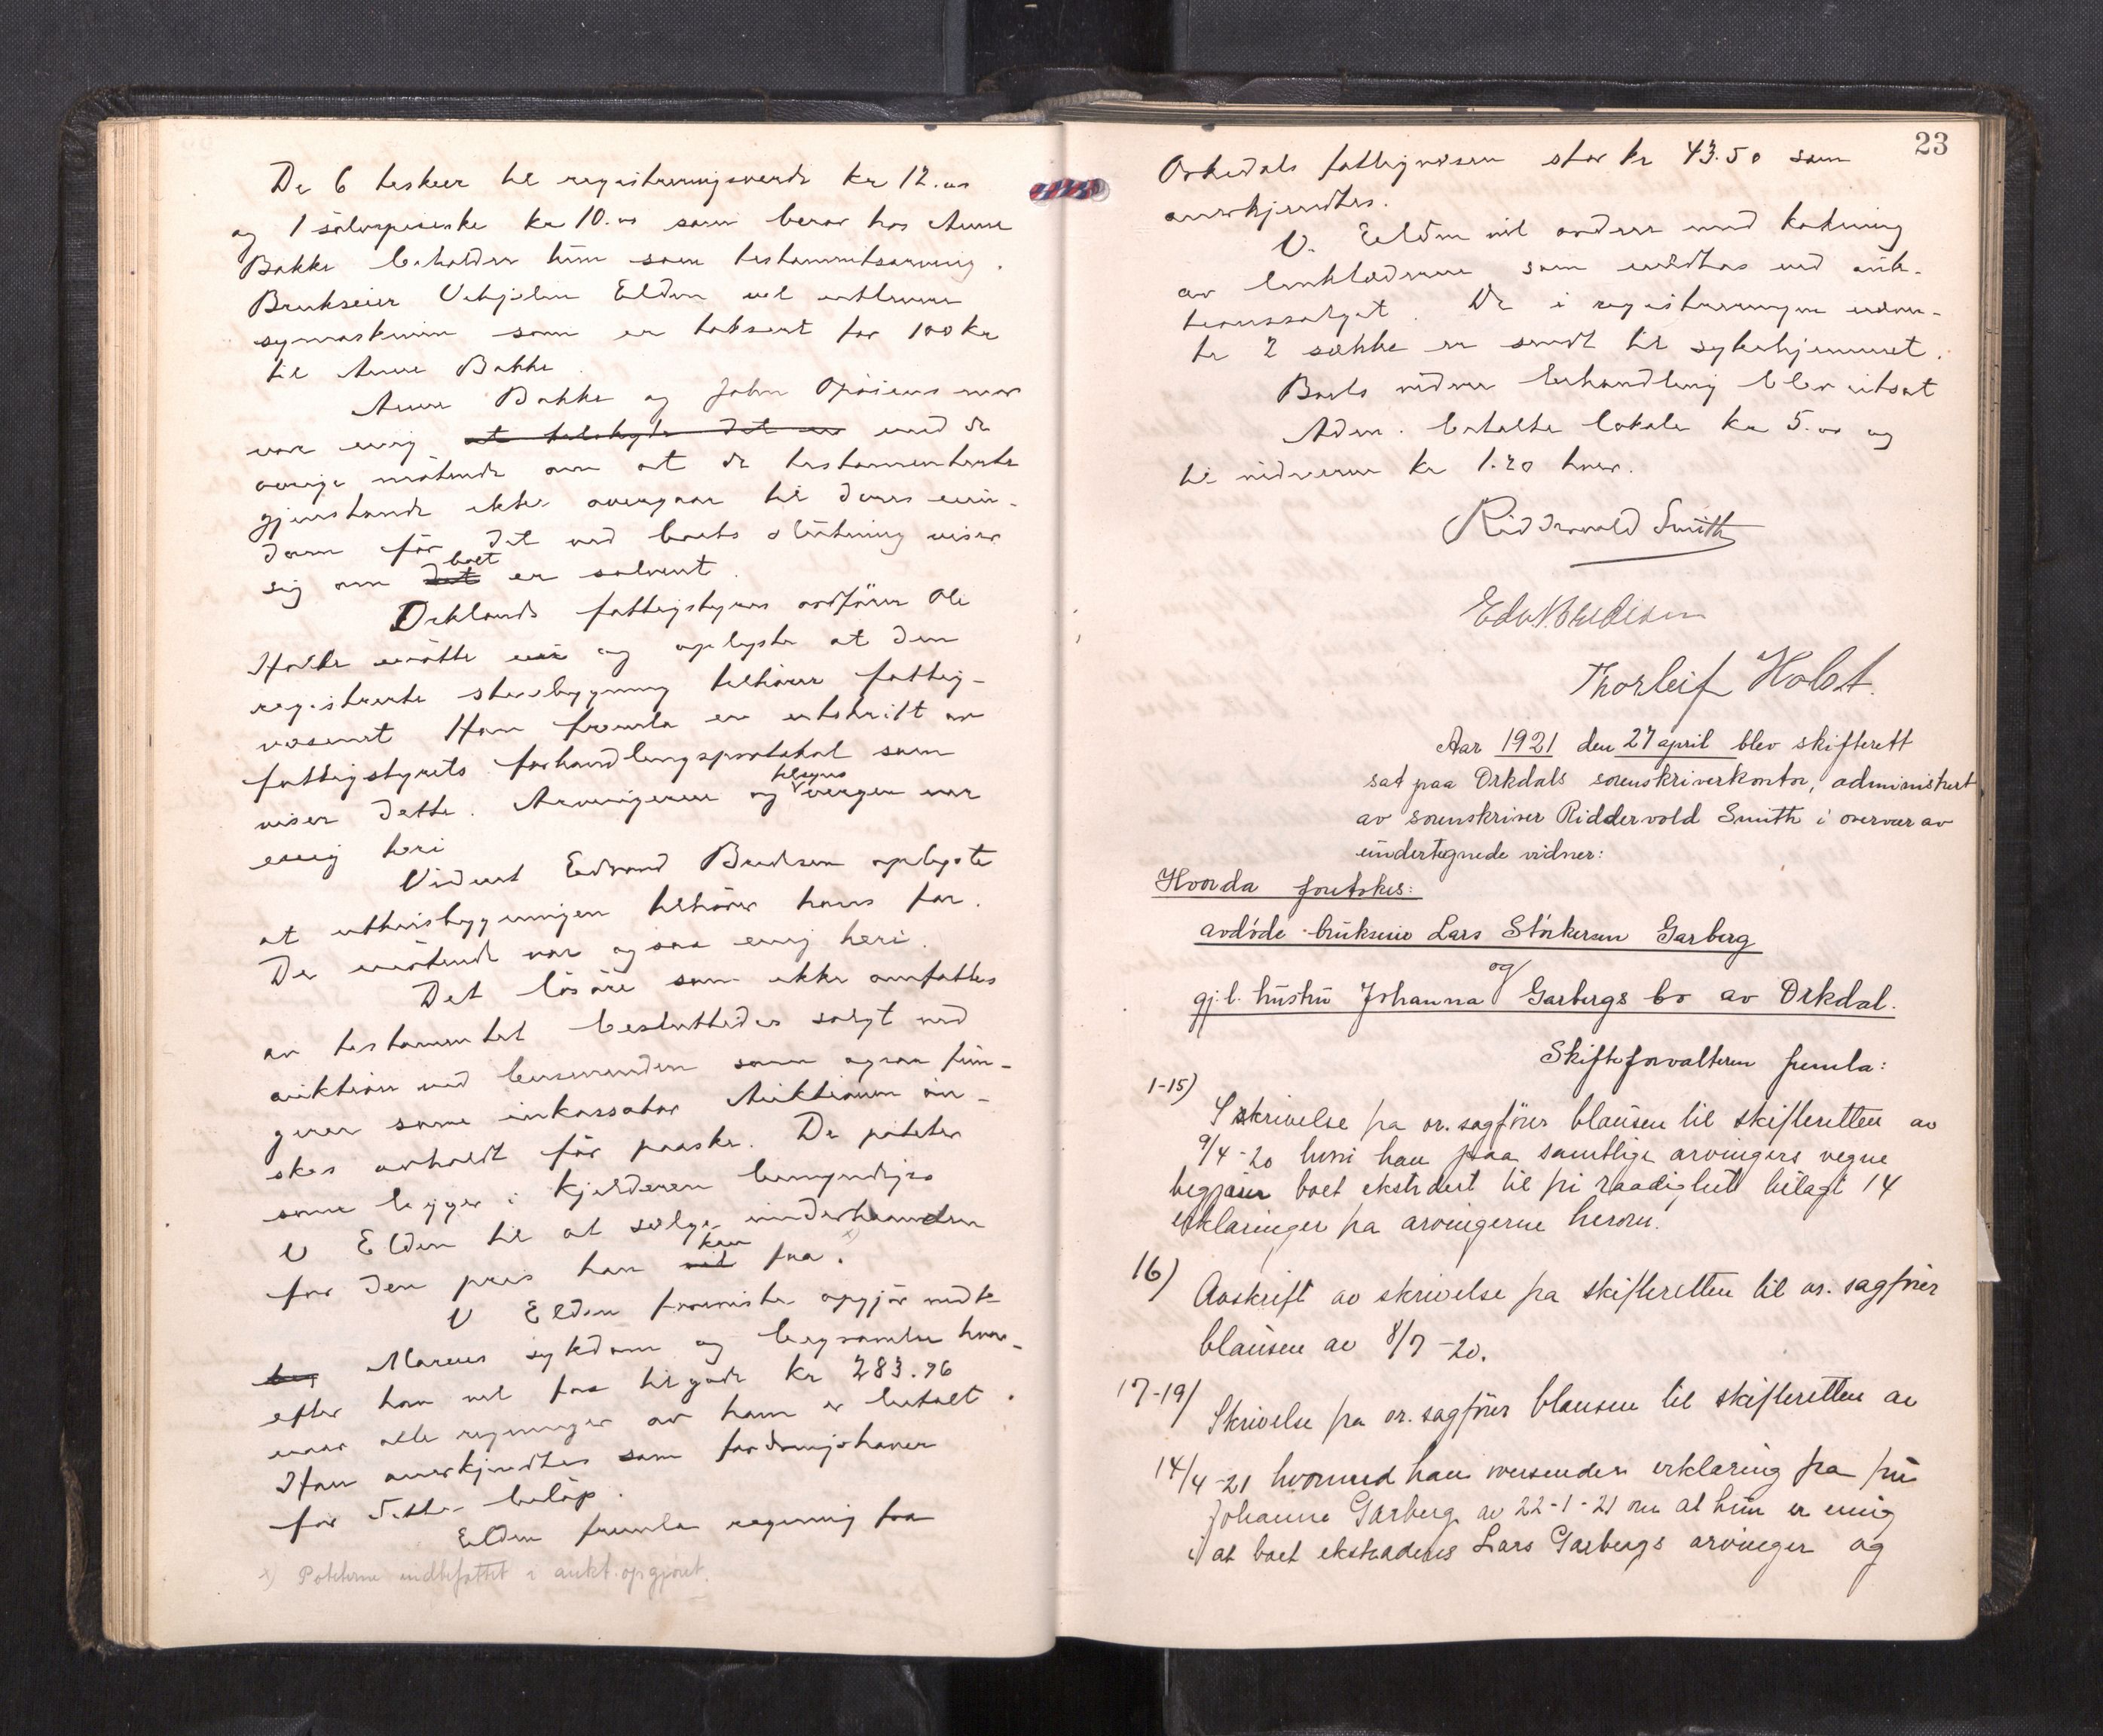 De 6 teskeer til registreringsverdi kr 12.00
og 1 sölvspiseske kr 10.00 som beror hos Anne
Bakke beholder hun som testamentsarving.
Brukseier Vehjelm Elden vil utlevere
symaskinen som er taksert for 100 kr
til Anne Bakke.
Anne Bakke og John Opöiens mor
var enig at med de
övrige mötende om at de testamenterte
gjenstande ikke overgaar til deres eien-
dom för det ved boets slutning viser
sig om det boet er solvent.
Orklands fattigstyres ordförer Ole
Hoston mötte og oplyste at den
registrerte stuebygning tilhörer fattig-
væsenet Han fremla en utskrift av
fattigstyrets forhandlingsprotokol som
viser dette. Arvingerne og tilsyns vergen var
enig heri
Vidnet Edvard Bredesen oplyste
at uthusbygningen tilhörer hans far.
De mötende var ogsaa enig heri.
Det lösöre som ikke omfattes
av testamentet besluttedes solgt ved
auktion ved lensmanden som ogsaa fun-
gerer some inkassator Auktionen ön-
skes avholdt för paaske. De poteter
some ligger i kjelderen bemyndiges
V Elden til at selge underhaanden
for den pris han vil kan faa. x)
V Elden fremviste opgjör vedk
Marens sykdom og begravelse hvor-
efter han vil faa tilgode kr 283.96
naar alle regninger av ham er betalt.
Han anerkjendtes som fordringshaver
for dette belöp.
Elden fremla regning fra
x) Poteterne indbefattet i aukt.opgjöret.
23
Orkedals fattigvæsen stor kr 43.50 som
anerkjendtes.
V. Elden vil ordne med kokning
av linklæderne som ved auk-
tionssalget. De i registreringen nævn-
te 2 sække er sendt til sykehjemmet.
Boets videre behandling blev utsat
Adm. betalte lokale kr 5.00 og
til vidnerne kr 1.20 hver.
Riddervold Smith
Edv. Bredesen
Thorleif Holst.
Aar 1921 den 27 april blev skifterett
sat paa Orkdals sorenskriverkontor, administrert
av sorenskriver Riddervold Smith i overvær av
undertegnede vidner:
Hvorda foretokes:
avdöde brukseier Lars Störkersen Garberg
og
gj.l. hustru Johanna Garbergs bo av Orkdal.
Skifteforvalteren fremla:
1-15)
Skrivelse fra or. sagförer Clausen til skifteretten av
9/4-20 hvori han paa samtlige arvingers vegne
begjærer boet ekstradert til fri raadighet bilagt 14
erklæringer fra arvingerne herom.
16)
Avskrift av skrivelse fra skifteretten til or. sagförer
Clausen av 8/7-20.
17-19/
Skrivelse fra or. sagförer Clausen til skifteretten av
14/4-21 hvormed han oversender erklæring fra fru
Johanne Garberg av 22-1-21 om at hun er enig
i at boet ekstraderes Lars Garbergs arvinger og